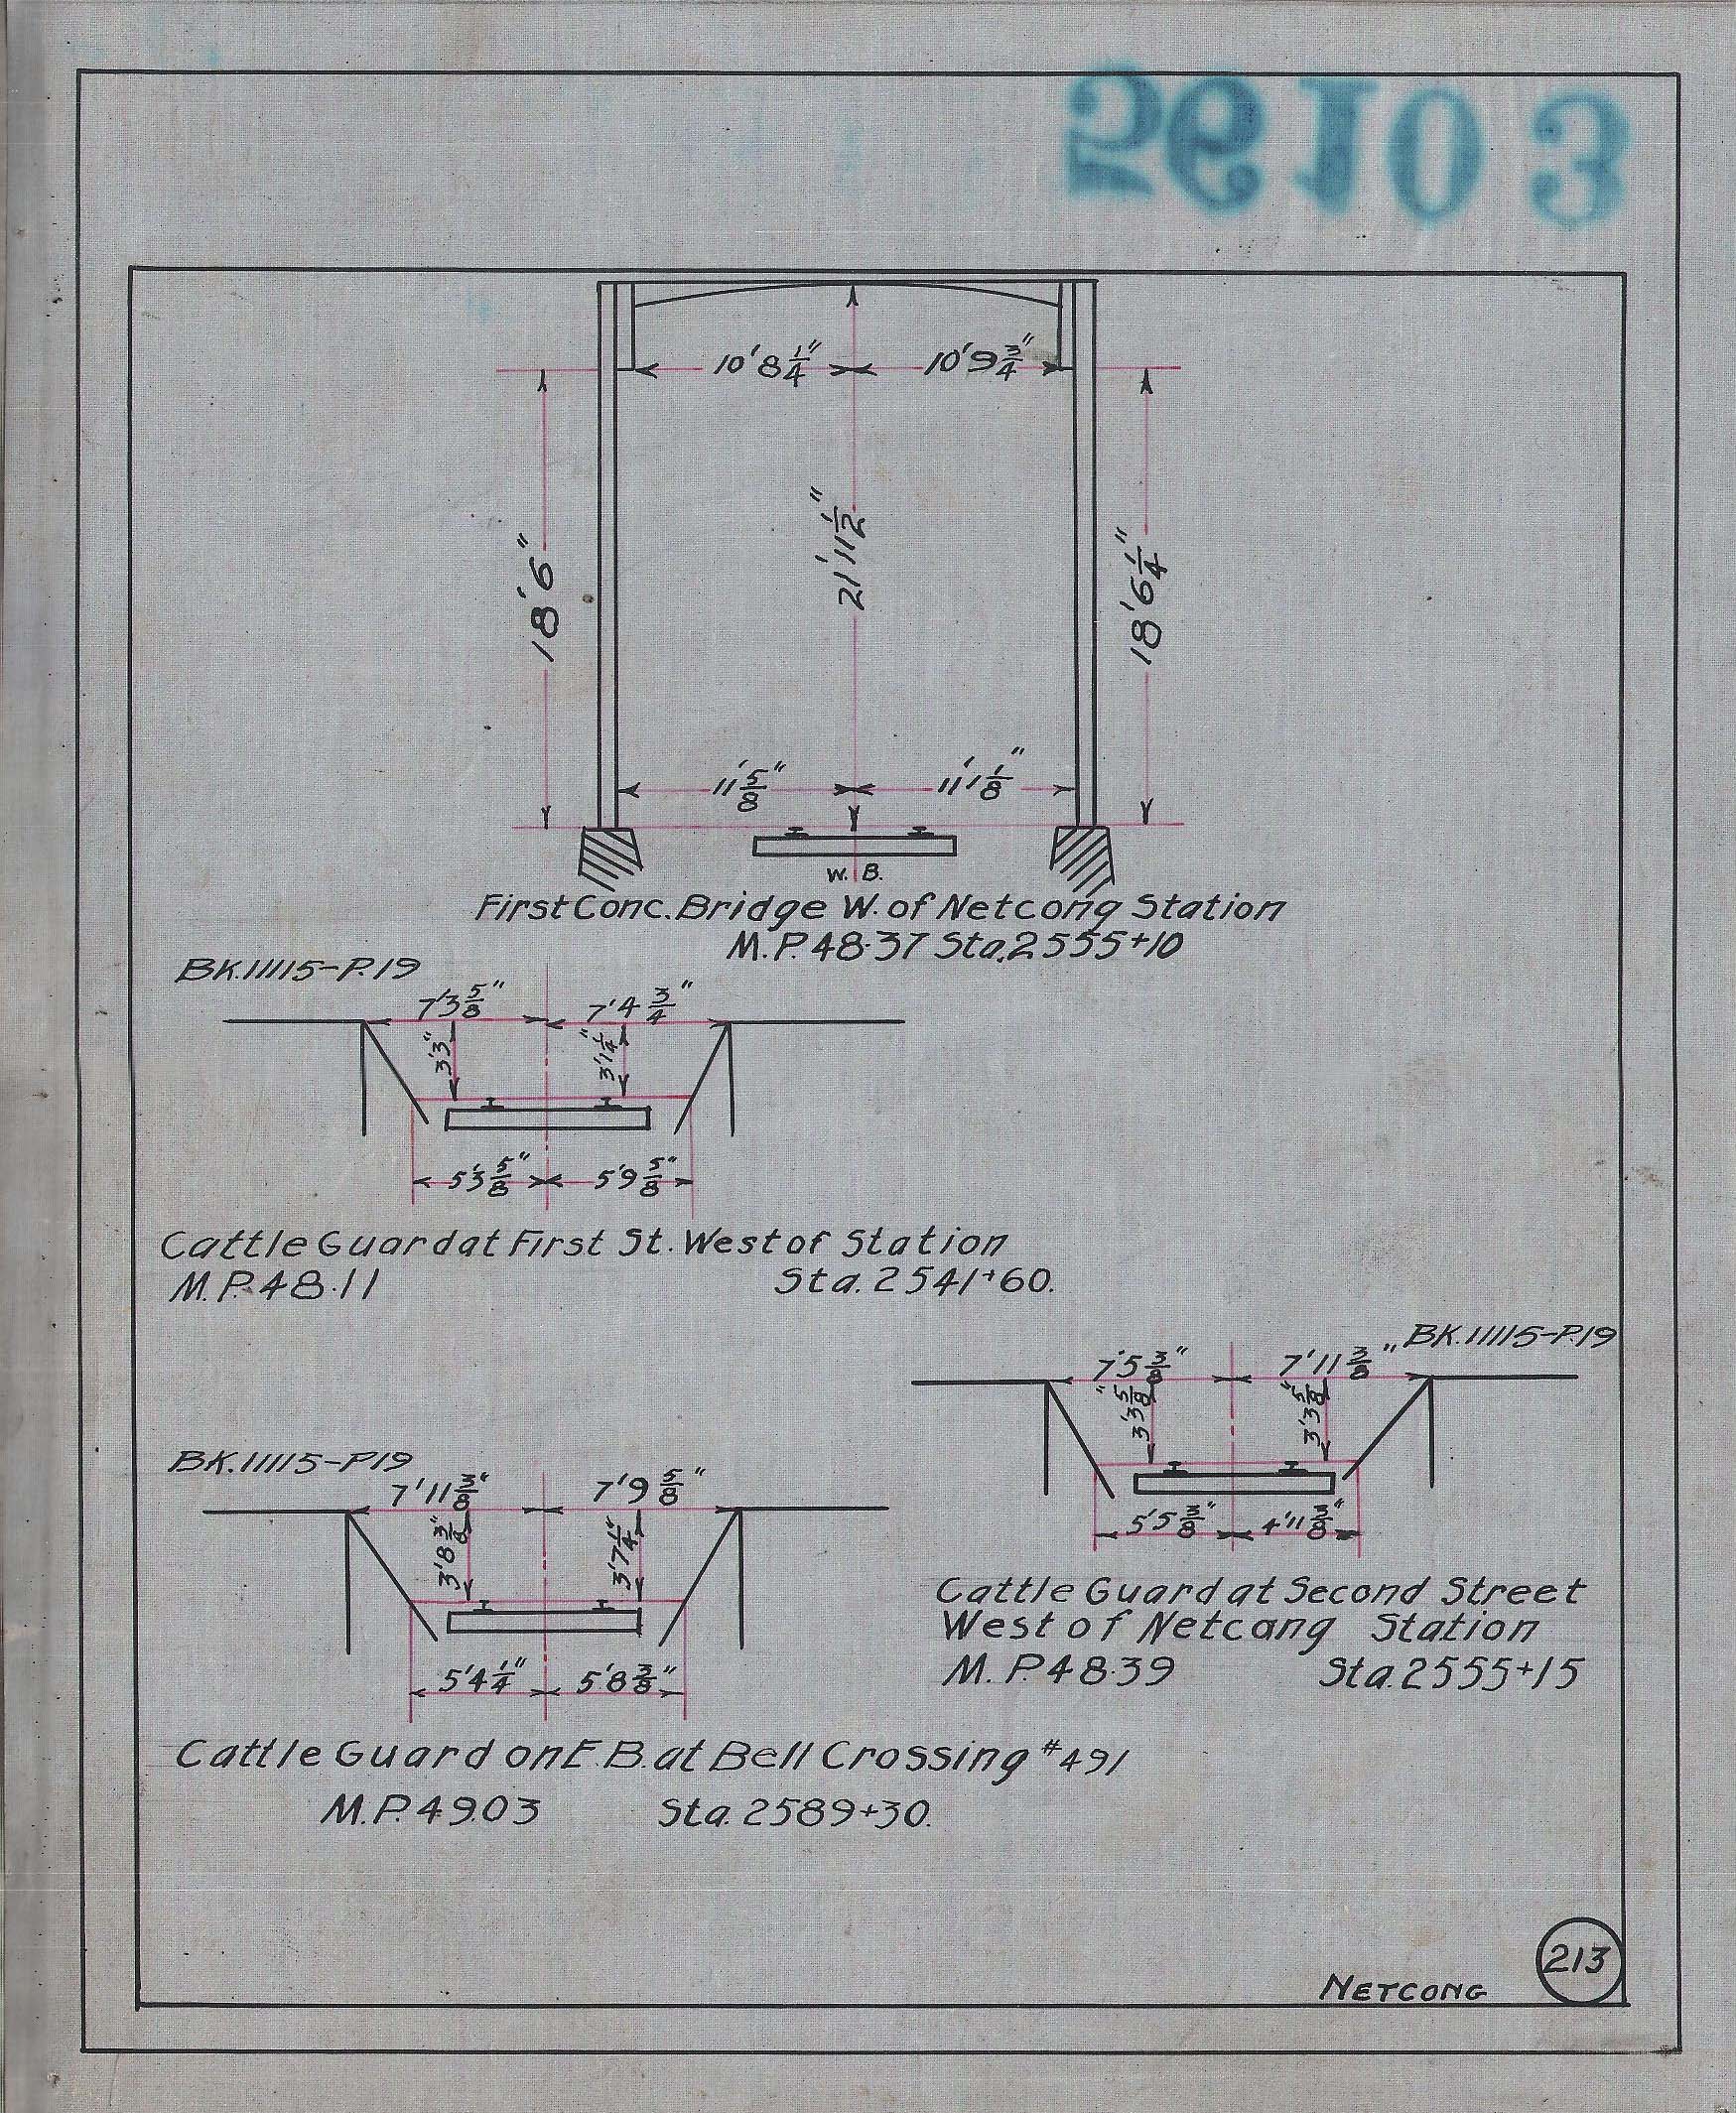 56103
10'8 1/4"
10'9 3/4"
18'6"
21'11 1/2"
18'6 1/4"
11' 5/8"
11'1 1/8"
W.B.
First Conc. Bridge W. of Netcong Station
M.P. 48.37 Sta. 2555+10
BK.11115-P.19
7'3 5/8"
7'4 3/4"
3'3"
3'1 1/4"
5'3 5/8"
5'9 5/8"
Cattle Guard at First St. West of Station
M.P. 48.11 Sta. 2541+60.
BK.11115-P.19
7'5 3/8"
7'11 3/8"
3'3 5/8"
3'3 5/8"
5'5 3/8"
4'11 3/8"
Cattle Guard at Second Street
West of Netcang Station
M.P. 48.39 Sta. 2555+15
BK.11115-P19
7'11 3/8"
7'9 5/8"
3'8 3/8"
3'7 1/4"
5'4 1/4"
5'8 3/8"
Cattle Guard on E.B. at Bell Crossing #491
M.P. 49.03 Sta. 2589+30.
213
NETCONG